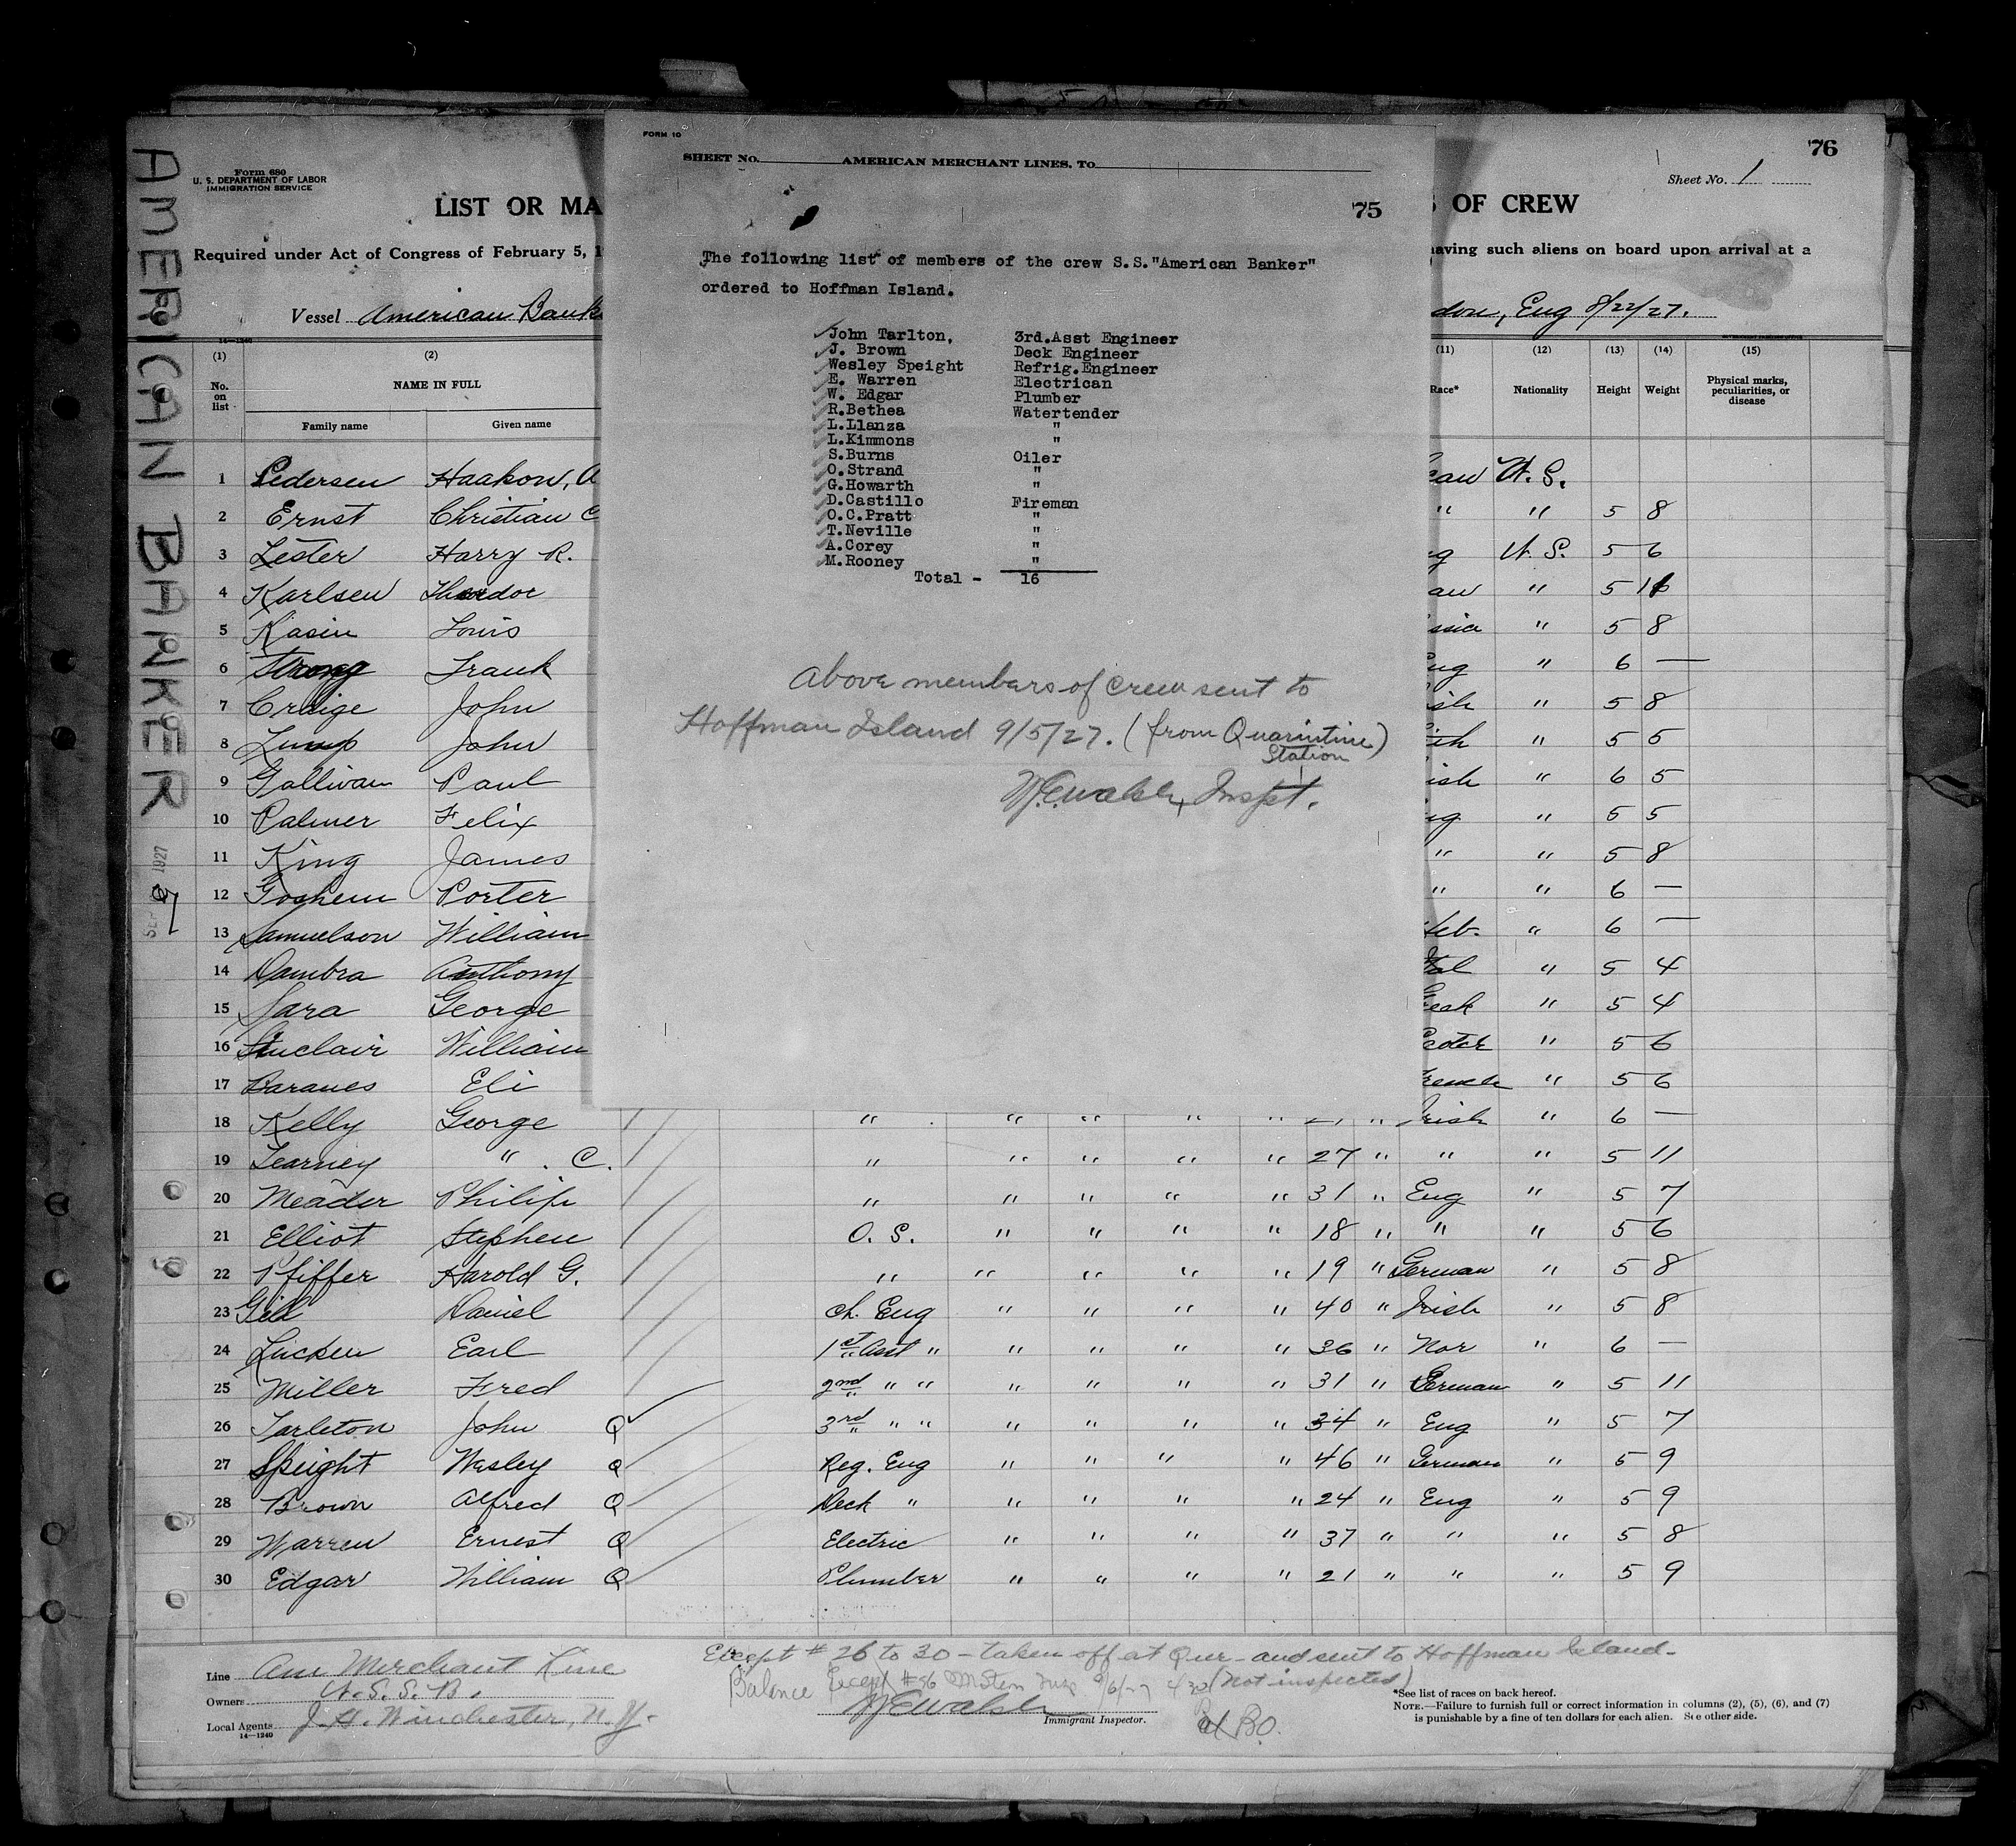 AMERICAN BANKER
1927
Form 680
U. S. DEPARTMENT OF LABOR
IMMIGRATION SERVICE
LIST OR MA
Required under Act of Congress of February 5, 1
Vessel American Bank
14—1240
FORM 10
SHEET No. AMERICAN MERCHANT LINES, TO
'75
The following list of members of the crew S.S."American Banker"
ordered to Hoffman Island.
John Tarlton, 3rd.Asst Engineer
J. Brown Deck Engineer
Wesley Speight Refrig.Engineer
E. Warren Electrican
W. Edgar Plumber
R.Bethea Watertender
L.Llanza "
L.Kimmons "
S.Burns Oiler
O.Strand "
G.Howarth "
D.Castillo Fireman
O.C.Pratt "
T.Neville "
A.Corey "
M.Rooney "
Total - 16
Above members of crew sent to
Hoffman Island 9/5/27. (from Quarintine)
Station
W.E.Walsh, Inspt.
'76
Sheet No. 1
OF CREW
having such aliens on board upon arrival at a
don, Eng 8/22/27.
(1) (2) (11) (12) (13) (14) (15)
No. on list NAME IN FULL Race* Nationality Height Weight Physical marks, peculiarities, or disease
Family name Given name
1 Pedersen Haakon, A can U.S.
2 Ernst Christian C " " 5 8
3 Lester Harry R. g U.S. 5 6
4 Karlsen an " 5
5 Kasin Louis ssia " 5 8
6 Strong Frank Eng " 6 —
7 Craige John ish " 5 8
8 Lump John ith " 5 5
9 Gallivan Paul ish " 6 5
10 Palmer Felix ng " 5 5
11 King James " " 5 8
12 Goshem Porter " " 6 —
13 Samuelson William Heb. " 6 —
14 Dambra Anthony Ital " 5 4
15 Sara George Greek " 5 4
16 Sinclair William Scotch " 5 6
17 Baranes Eli French " 5 6
18 Kelly George " " " " " " Irish " 6 —
19 Fearney " . C. " " " " " 27 " " " 5 11
20 Meader Philip " " " " " 31 " Eng " 5 7
21 Elliot Stephen O. S. " " " " 18 " " " 5 6
22 Pfiffer Harold G. " " " " " 19 " German " 5 8
23 Gill Daniel Ch. Eng " " " " 40 " Irish " 5 8
24 Lucken Earl 1st Asst " " " " " 36 " Nor " 6 —
25 Miller Fred 2nd " " " " " " 31 " German " 5 11
26 Tarleton John Q 3rd " " " " " " 34 " Eng " 5 7
27 Speight Wesley Q Reg. Eng " " " " 46 " German " 5 9
28 Brown Alfred Q Deck " " " " " 24 " Eng " 5 9
29 Warren Ernest Q Electric " " " " 37 " " " 5 8
30 Edgar William Q Plumber " " " " 21 " " " 5 9
Except # 26 to 30 - taken off at Qur - and sent to Hoffman Island.
Balance Except #26 9/6/27 (Not inspected)
Line Am Merchant Line
Owners U.S.S.B.
Local Agents J.H. Winchester, N.Y.
14—1240
W E Walsh
Immigrant Inspector.
*See list of races on back hereof.
NOTE.—Failure to furnish full or correct information in columns (2), (5), (6), and (7)
is punishable by a fine of ten dollars for each alien. See other side.